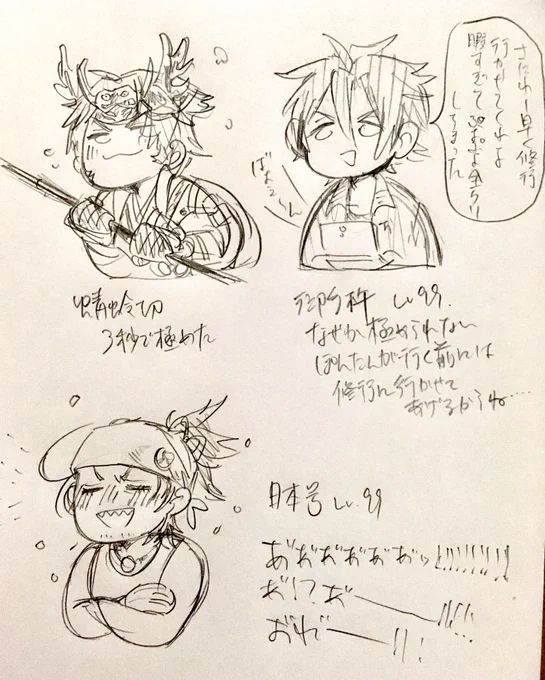 さにわー早く修行
行かせてくれよ
暇すぎて
しちまった
ばょえ〜ん
蜻蛉切
3秒で極めた
御手杵 Lv99.
なぜか極められない
ぽんたんが行く前には
修行に行かせて
あげるからね……
日本号 Lv.99
あ゛お゛お゛お゛お゛お゛ッ!!!!!!!
お゛!?お゛ー!!!…
お゛れ゛ー!!